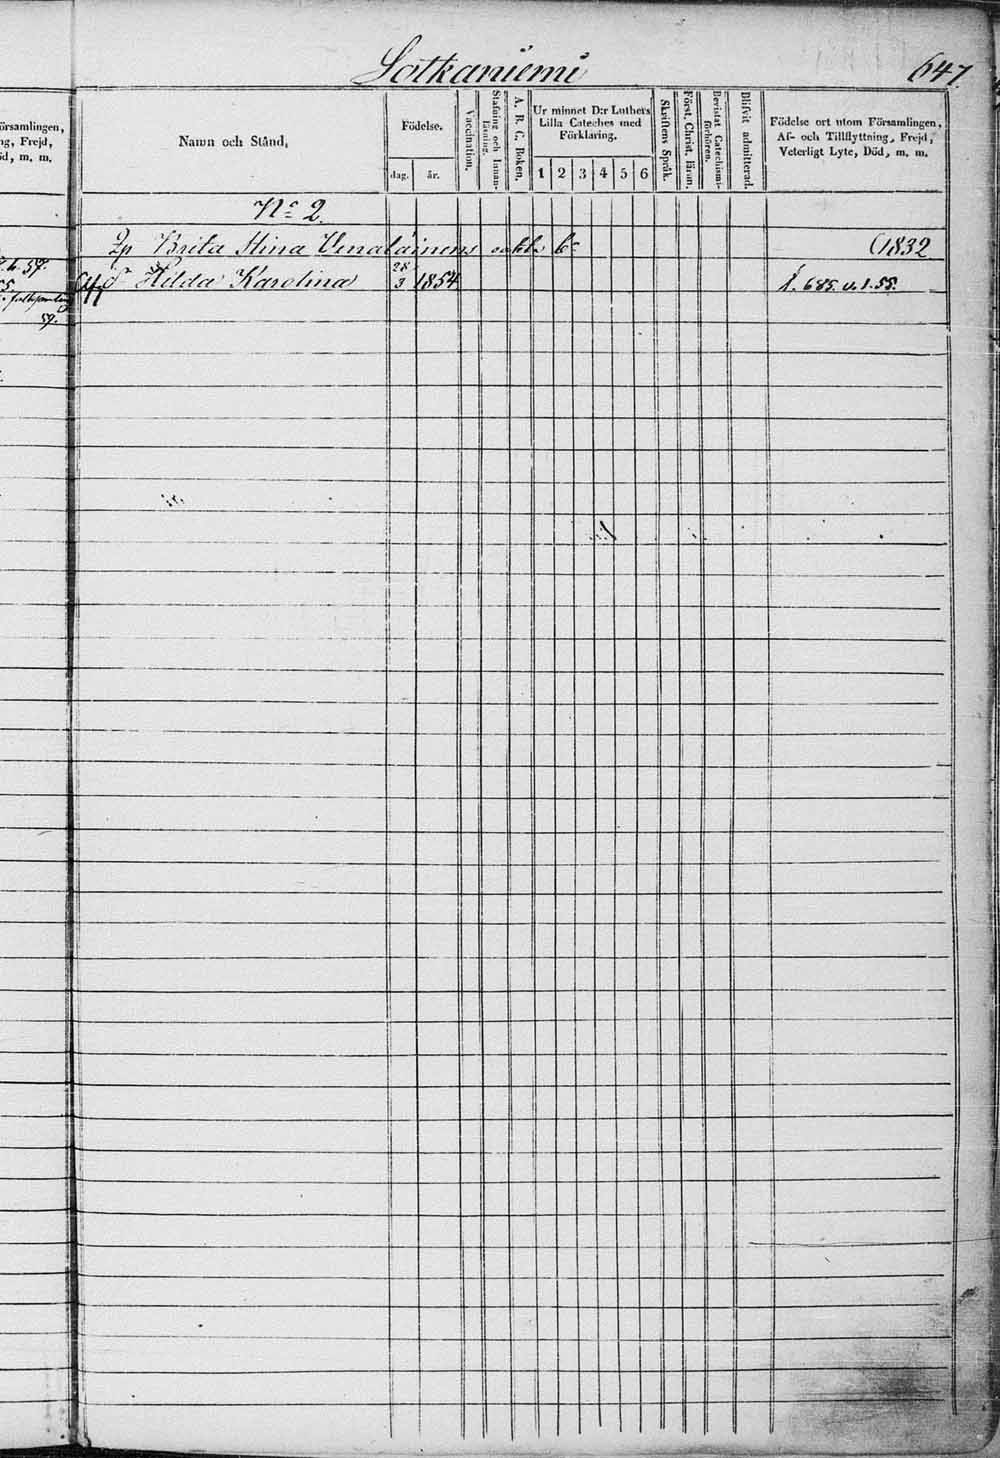 Sotkaniemi 647.
örsamlingen,
ng, Frejd,
öd, m. m.
Namn och Stånd,
Födelse.
dag. år.
Vaccination.
Stafning och Innanläsning.
A. B. C. Boken.
Ur minnet D:r Luthers
Lilla Cateches med
Förklaring.
1 2 3 4 5 6
Skriftens Språk.
Först. Christ. läran.
Bevistat Catechismiförhören.
Blifvit admitterad.
Födelse ort utom Församlingen,
Af- och Tillflyttning, Frejd,
Veterligt Lyte, Död, m. m.
No 2.
Brita Stina Venäläinens (1832
Hilda Karolina 28/3 1854 f. 685. u. 1.55.
57.
59.